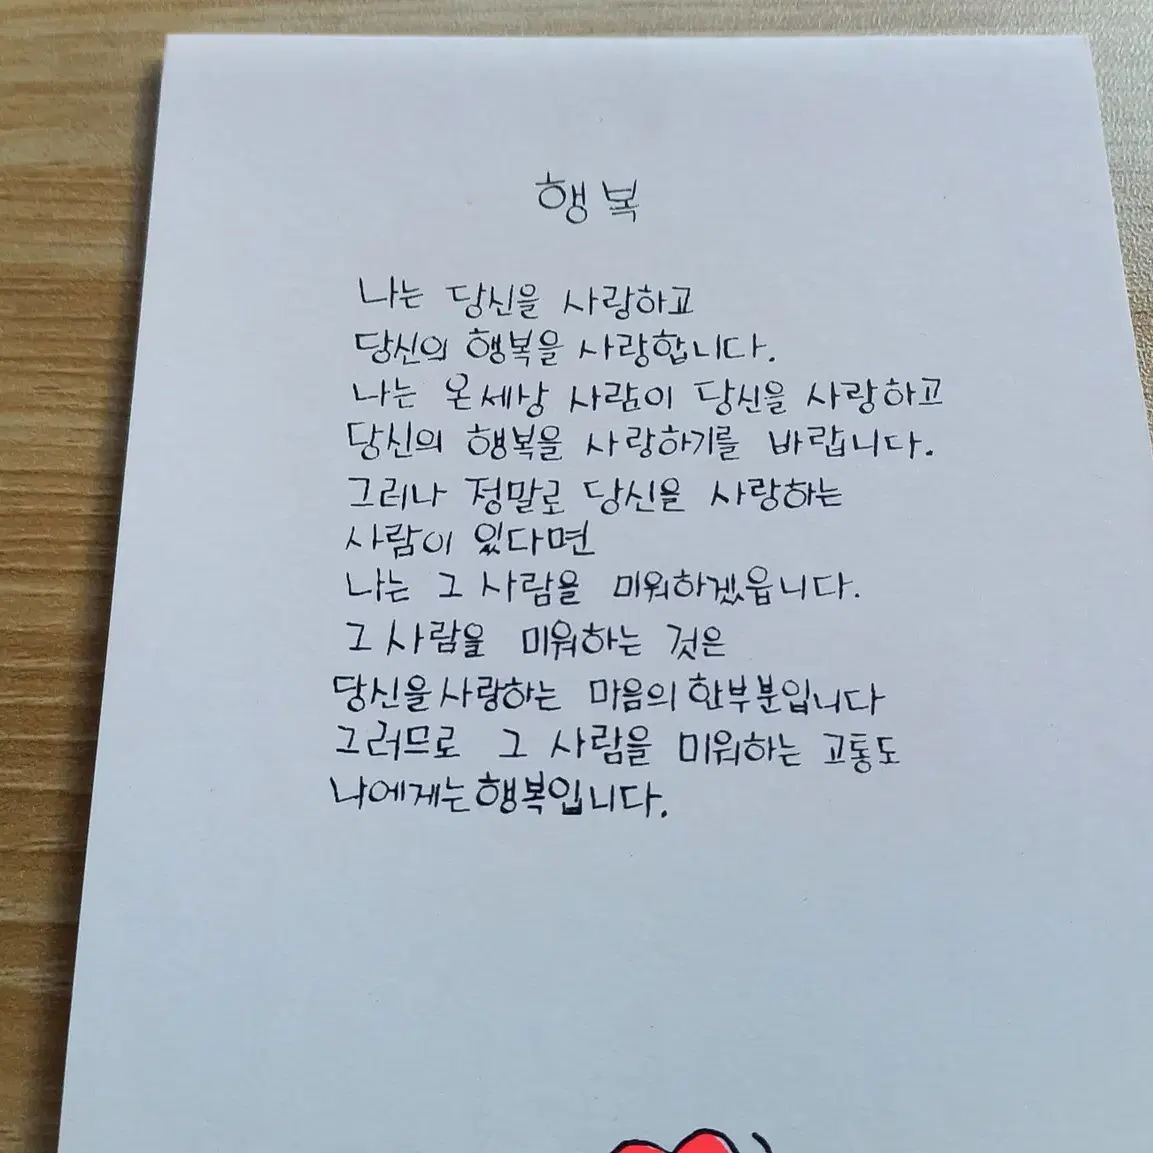 행복
나는 당신을 사랑하고
당신의 행복을 사랑합니다.
나는 온세상 사람이 당신을 사랑하고
당신의 행복을 사랑하기를 바랍니다.
그러나 정말로 당신을 사랑하는
사람이 있다면
나는 그 사람을 미워하겠읍니다.
그 사람을 미워하는 것은
당신을 사랑하는 마음의 한부분입니다
그러므로 그 사람을 미워하는 고통도
나에게는 행복입니다.